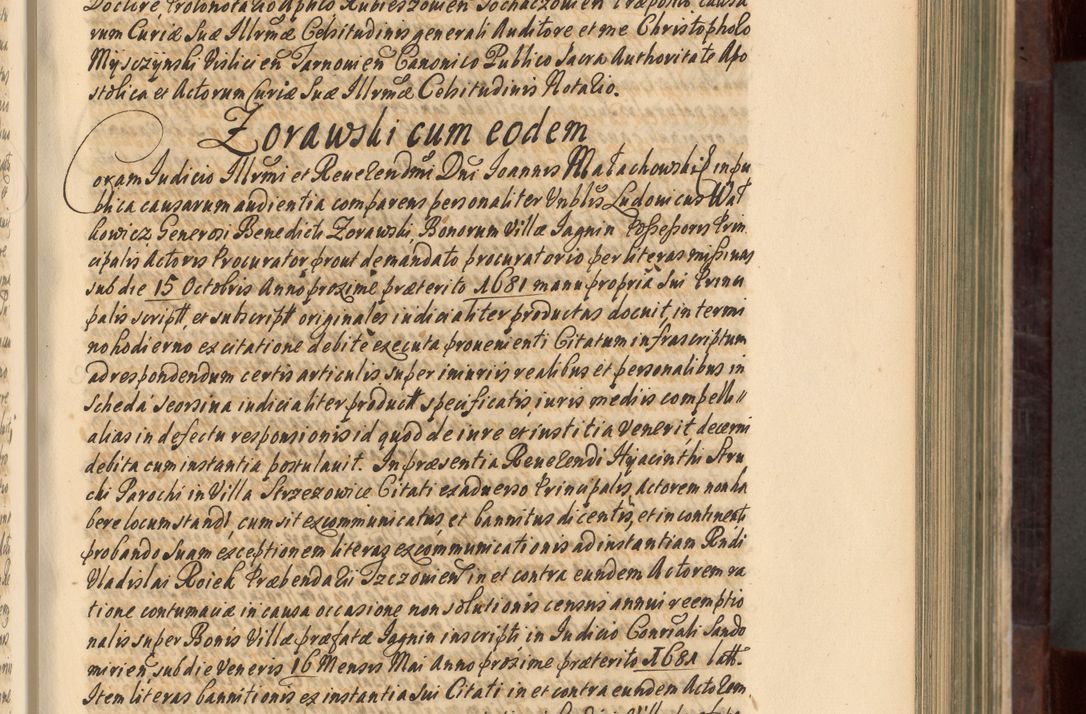 Doctore, Protonotario Aplico Rubieszovien Sochaczovien Præposito, causa
rum Curiæ Suæ Illrmæ Celsitudinis generali Auditore et me Christopholo
Mysczynski Vislicien Tarnovien Canonico Publico Sacra Authoritate Apo
stolica et Actorum Curiæ Suæ Illrmæ Celsitudinis Notario.
Zorawski cum eodem
Coram Judicio Illrmi et Reverendmi Dni Joannis Małachowski E in pu
blica causarum audientia comparens personaliter Vnblis Ludovicus Wał
kowicz Generosi Benedicti Zorawski Bonorum Villæ Jagnin Possessoris Prin
cipalis Actoris Procurator prout de mandato procuratorio per literas missivas
sub die 15 Octobris Anno proxime præterito 1681 manu propria sui Princi
palis script, et subscript originales iudicialiter productas docuit, in termi
no hodierno ex citatione debite executa provenienti Citatum infrascriptum
ad respondendum certis articulis super iniuriis realibus et personalibus in
scheda seorsiva iudicialiter product specificatis, iuris mediis compelli
alias in defectu responsionis id quod de iure et iustitia venerit decerni
debita cum instantia postulavit. In præsentia Reverendi Hyacinthi Stru
chi Parochi in Villa Strzezowice Citati ex adverso Principalis Actorem non ha
bere locum standi, cum sit excommunicatus et bannitus dicentis, et in continenti
probando suam exceptionem literas excommunicationis ad instantiam Rndi
Vladislai Roiek Præbendarii Tzczovien in et contra eundem Actorem ra
tione contumaciæ in causa occasione non solutionis census annui reemptio
nalis super Bonis Villæ præfatæ Jagnin inscripti in Judicio Consrali Sando
mirien, sub die Veneris 16 Mensis Mai Anno proxime præterito 1681 latt.
Item literas bannitionis ex instantia sui Citati in et contra eundem Actorem